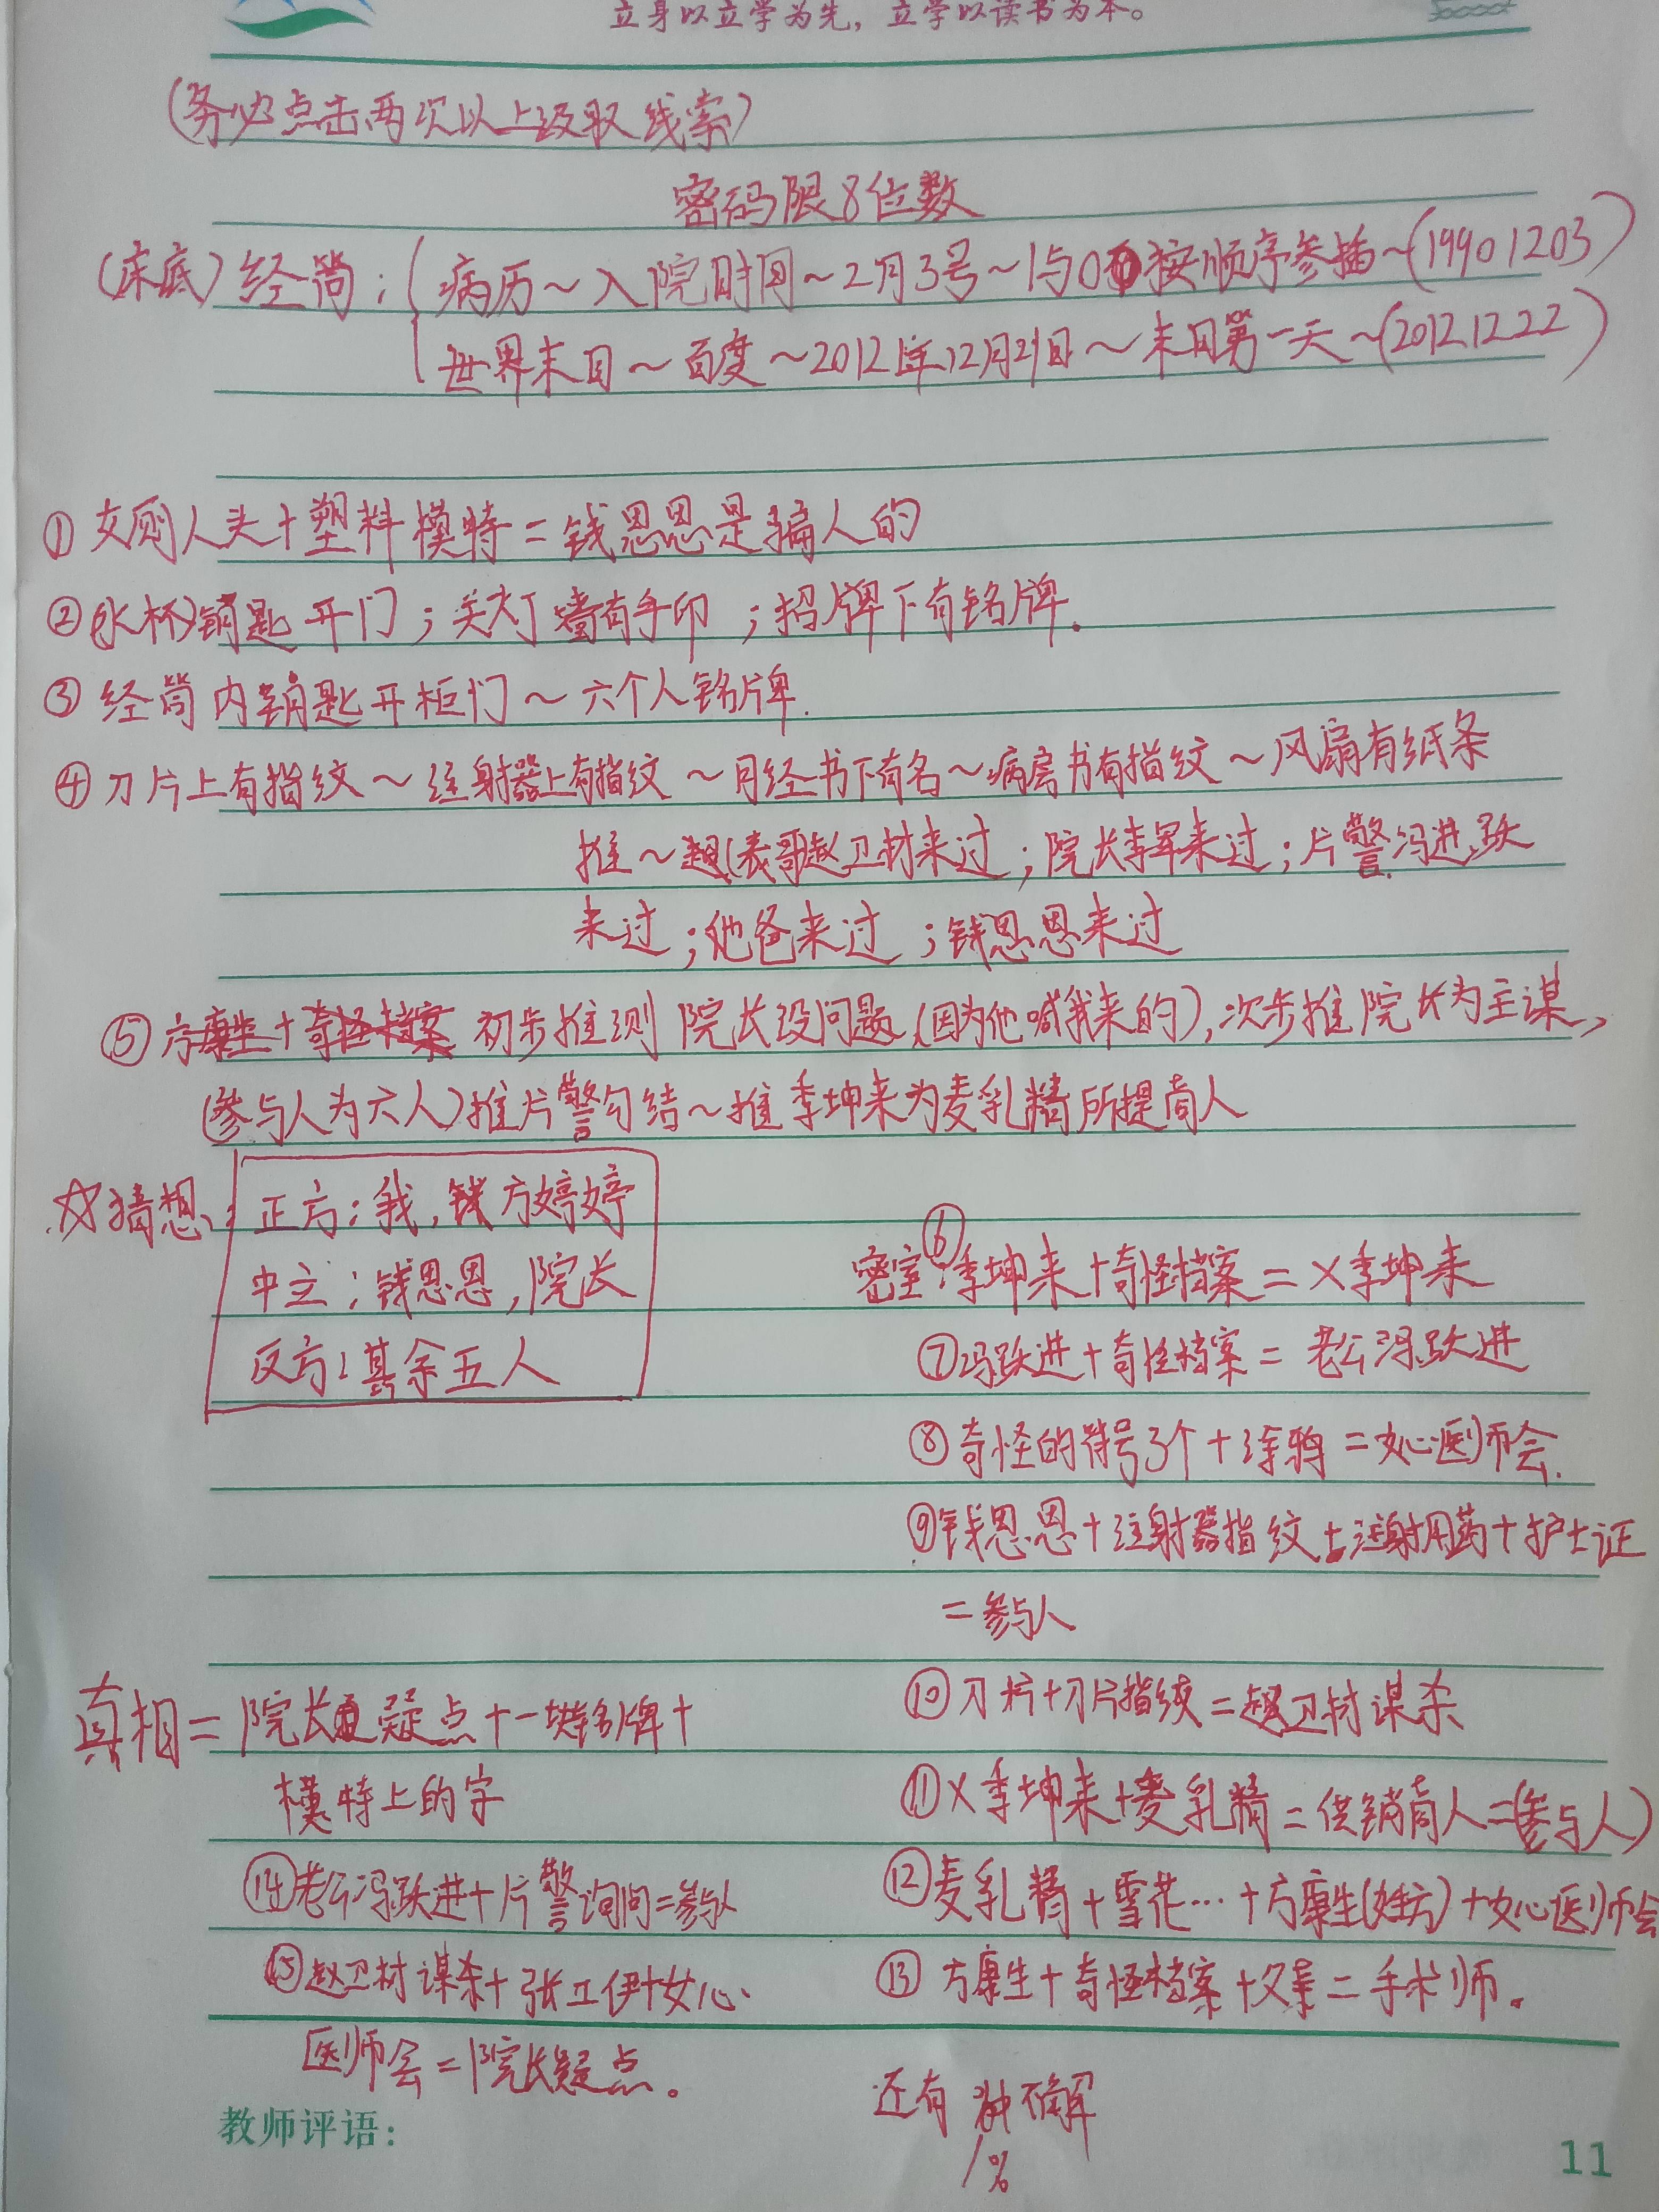 立身以立学为先，立学以读书为本。
(务必点击两次以上汲取线索)
密码限8位数
(床底)经筒：病历~入院时间~2月3号~1与0按顺序参插~(19901203)
世界末日~百度~2012年12月21日~末日第一天~(20121222)
①女厕人头+塑料模特=钱思思是骗人的
②(水杯)钥匙开门；关灯墙有手印；招牌下有铭牌.
③经筒内钥匙开柜门~六个人铭牌.
④刀片上有指纹~注射器上有指纹~月经书下有名~病房书有指纹~风扇有纸条
推~(表哥赵卫材来过；院长李军来过；片警冯进跃
来过；他爸来过；钱思思来过
⑤初步推测院长没问题(因为他喊我来的),次步推院长为主谋,
(参与人为六人)推片警勾结~推季坤来为麦乳精所提商人
☆猜想：正方：我,方婷婷
中立；钱思思,院长
反方：其余五人
⑥密室：季坤来+奇怪档案=X季坤来
⑦冯跃进+奇怪档案=老公冯跃进
⑧奇怪的符号3个+涂鸦=女心医师会.
⑨钱思思+注射器指纹+注射用药+护士证
=参与人
真相=院长疑点+一块铭牌+
模特上的字
⑩刀片+刀片指纹=赵卫材谋杀
⑪X季坤来+麦乳精=供销商人=(参与人)
⑫麦乳精+雪花…+方康生(姓方)+女心医师会
⑬方康生+奇怪档案+父亲=手术师。
⑭老公冯跃进+片警询问=参与人
⑮赵卫材谋杀+张工伊+女心
医师会=院长疑点。
还有 不解
1%
教师评语：
11